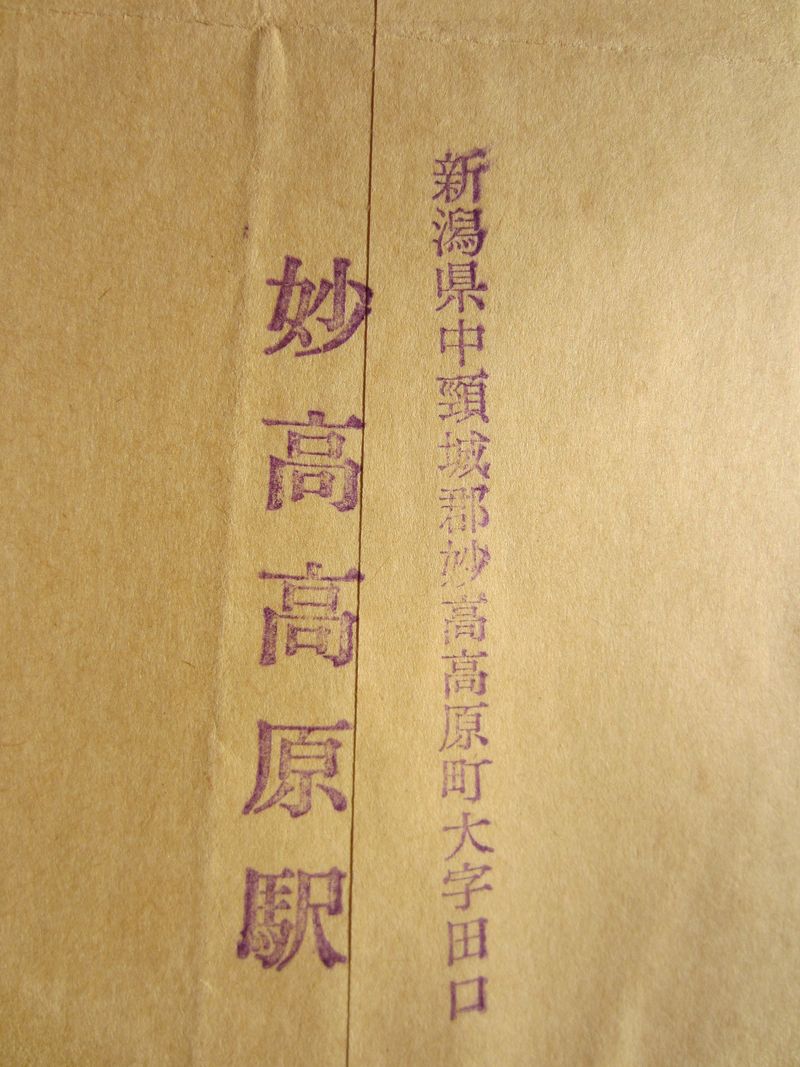 新潟県中頸城郡妙高高原町大字田口
妙高高原駅